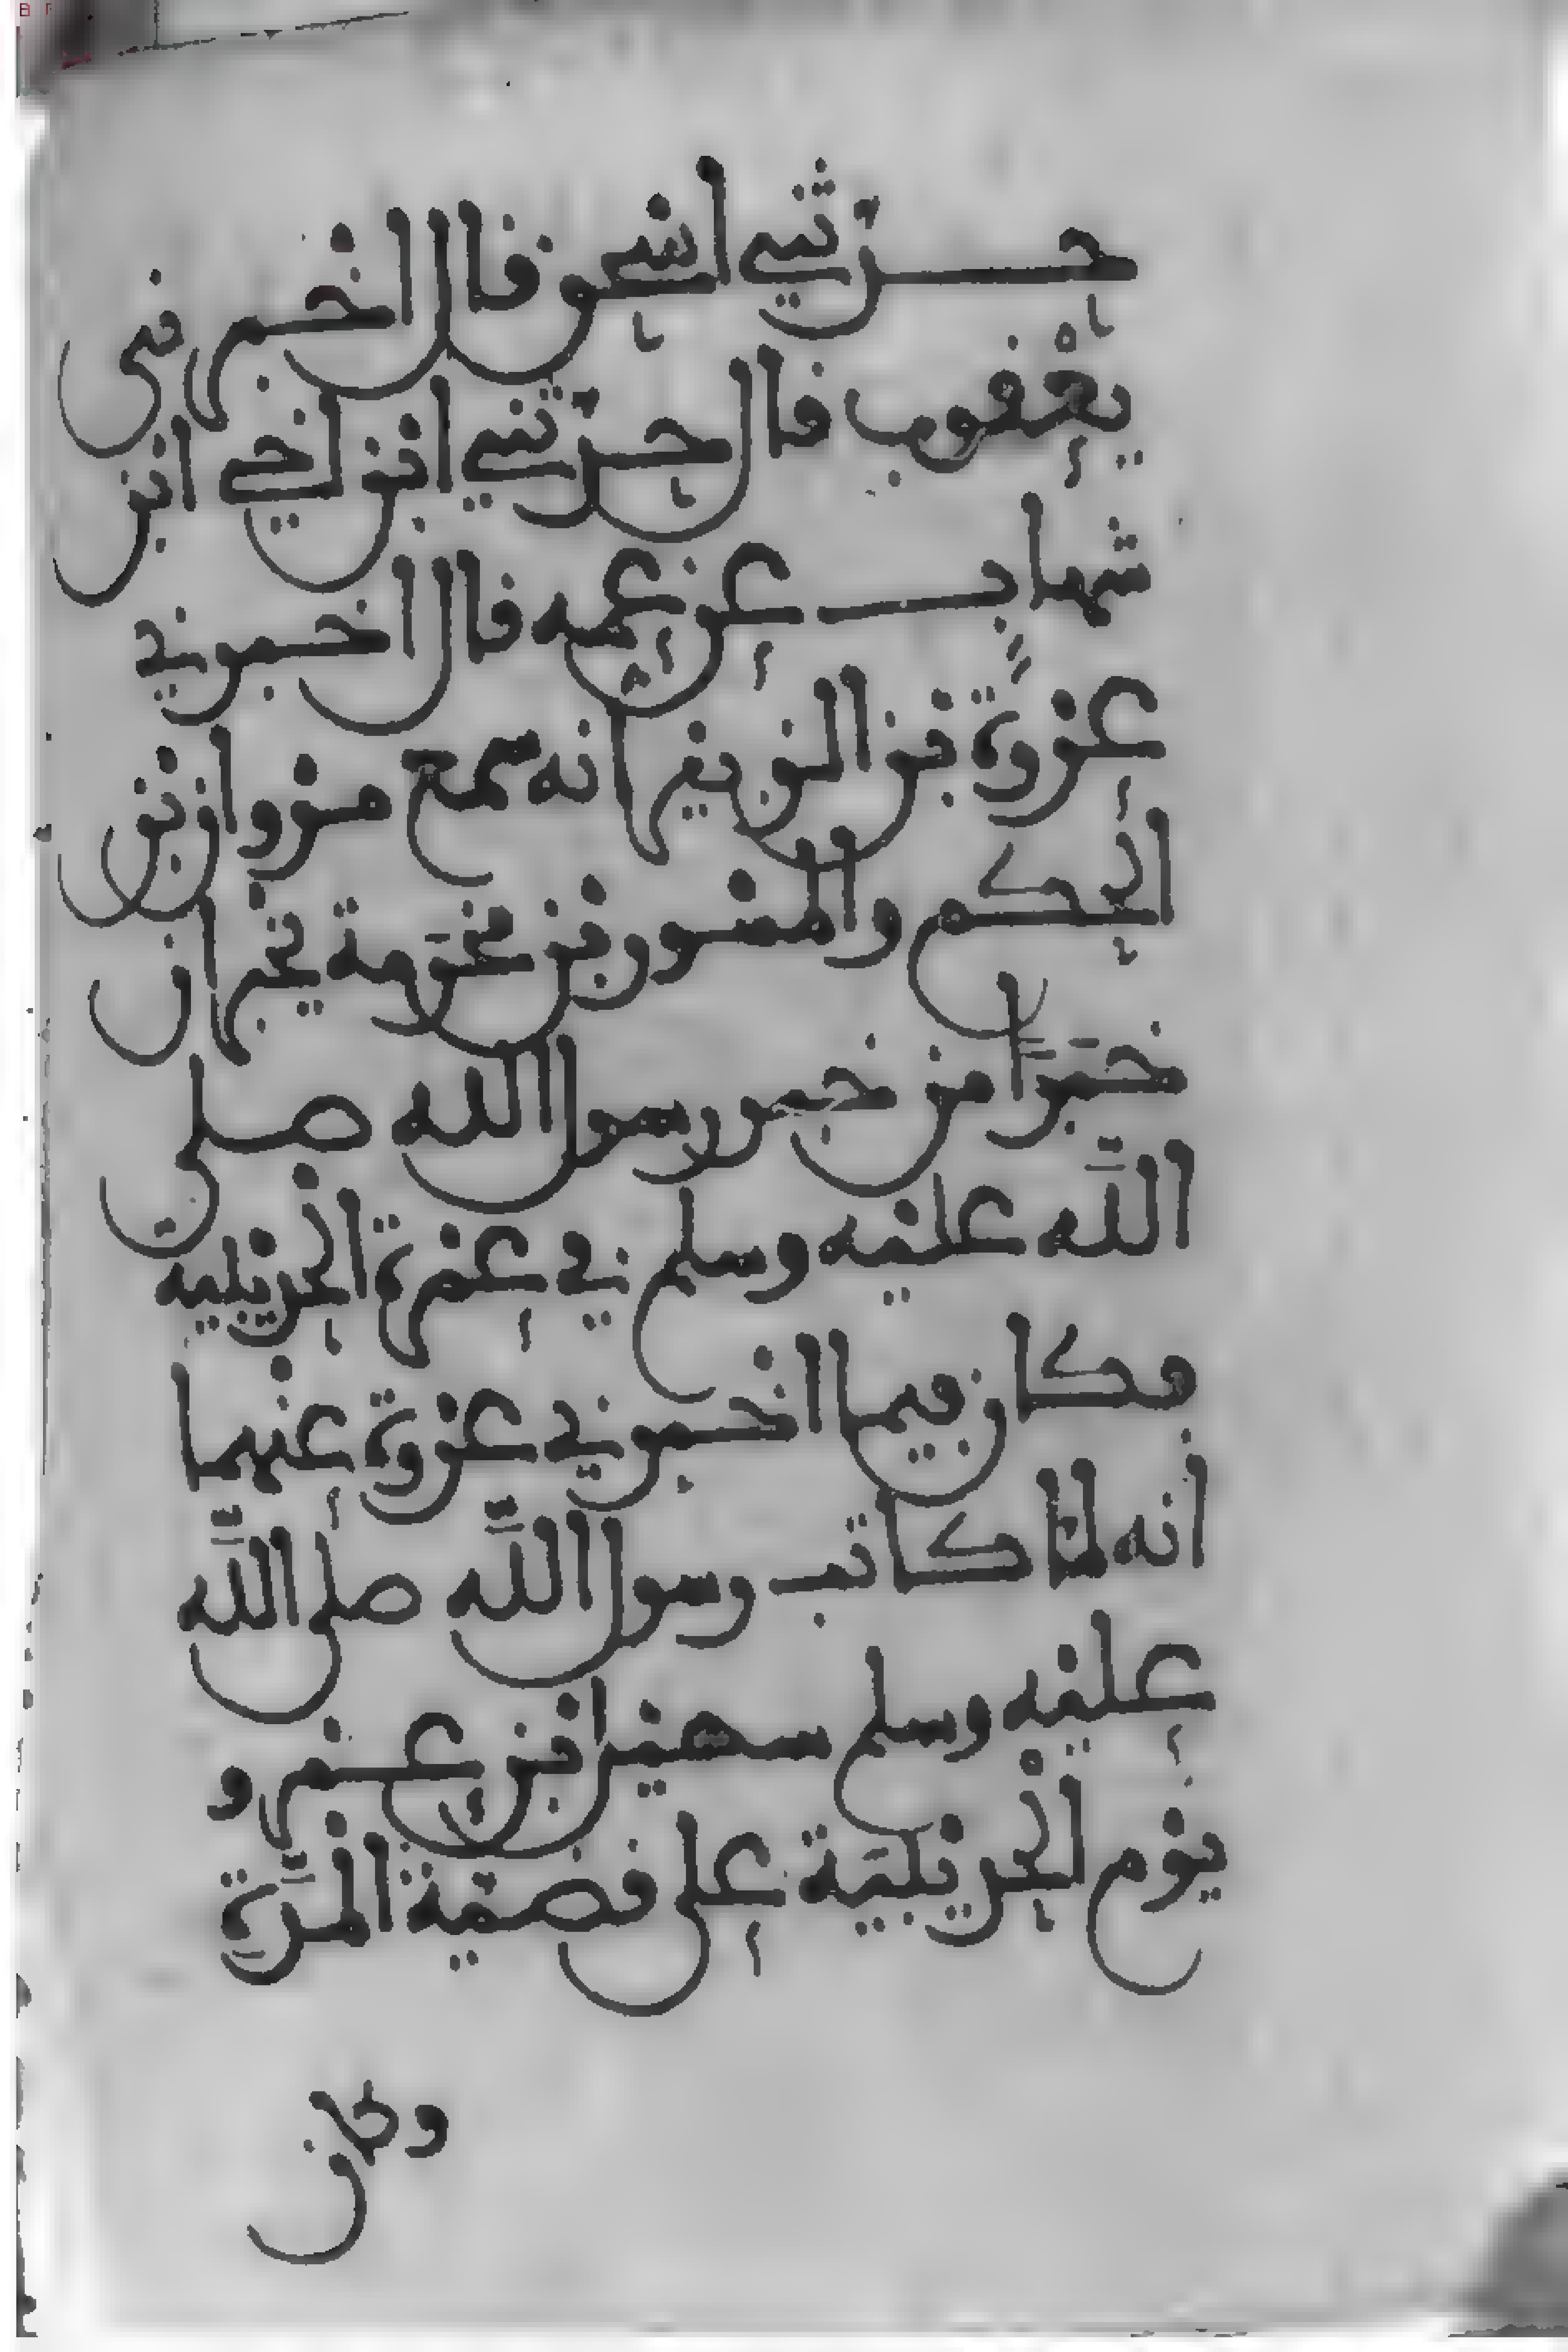 حدثني اسحق قال اخبرني
يعقوب قال حدثني ابن اخي ابن
شهاب عن عمه قال اخبرني
عروة بن الزبير انه سمع مروان بن
الحكم والمسور بن مخرمة يخبران
خبرًا من خبر رسول الله صلى
اللَّه عليه وسلم في عمرة الحديبية
فكان فيما اخبرني عروة عنهما
انه لما كاتب رسول اللَّه صلى اللَّه
عليه وسلم سهيل بن عمرو
يوم الحديبية على قضية المدة
وكان